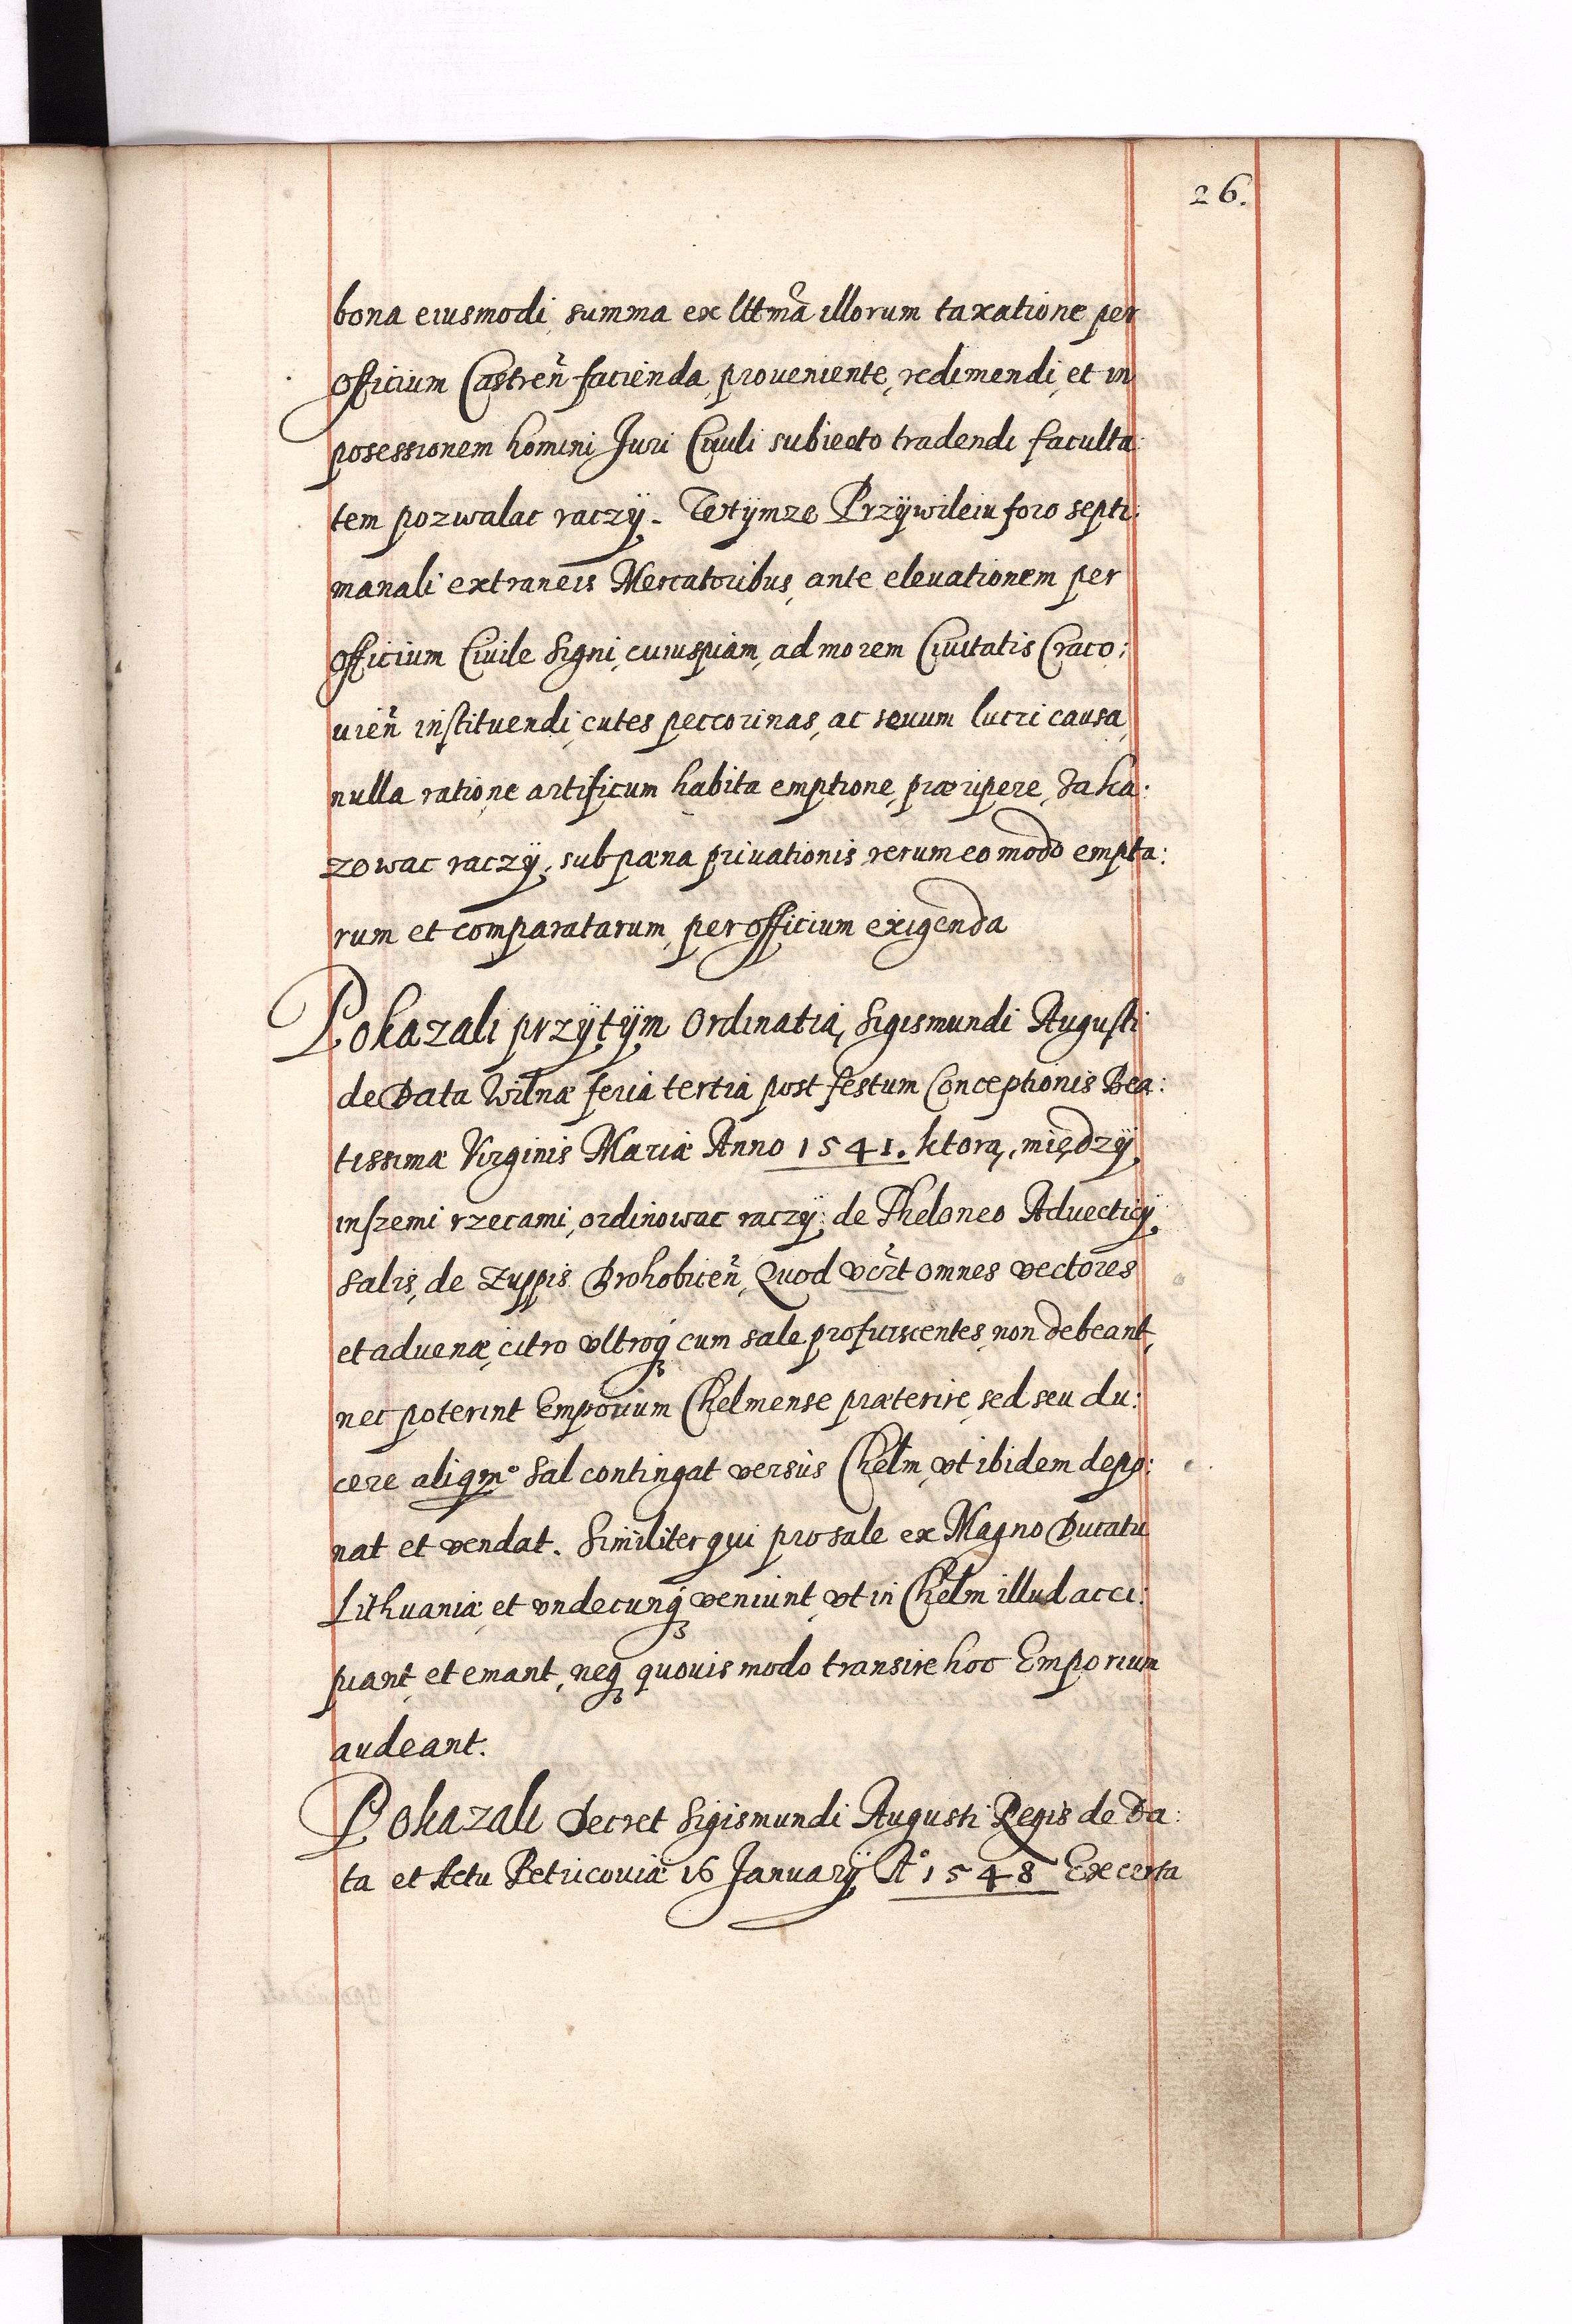 26.
bona eiusmodi, summa ex lttma illorum taxatione per
officium Castren̄ facienda, proueniente, redimendi, et in
posessionem homini Juri Ciuili subiecto tradendi faculta:
tem pozwalac raczÿ. WtÿmzePrzÿwileiu foro septi:
manali extraneis Mercatoribus, ante eleuationem per
officium Ciuile Signi, cuiuspiam, ad morem Ciuitatis Craco:
uien̄ instituendi, cutes peccorinas, ac sevum lucri causa,
nulla ratione artificum habita emptione, præripere, zaka:
zowac raczÿ, sub pæna priuationis rerum eo modo empta:
rum et comparatarum, per officium exigenda
Pokazali przÿtÿm Ordinatią, Sigismundi Augusti
de Data Wilnæ feria tertia post festum Conceptionis Bea:
tissimæ Virginis Mariæ Anno 1541. ktorą, międzÿ
inszemi rzecami, ordinowac raczÿ: de Theloneo Aduecticÿ
Salis, de Zuppis Drohobicen̄, Quod vc̄rt omnes vectores
et aduenæ, citro vltroq́ cum sale profuiscentes, non debeant,
nec poterint Emporium Chelmense præterire, sed seu du:
cere aliqm° Sal contingat versùs Chelm, vt ibidem depo:
nat et vendat. Similiter qui pro sale ex Magno Ducatu
Lithuaniæ et vndecunq́ veniunt, vt in Chelm illud acci:
piant et emant, neq quouis modo transire hoc Emporium
audeant.
Pokazali Decret Sigismundi Augusti Regis de Da:
ta et Actu Petricouiæ 16 Januarÿ A° 1548 Ex certa